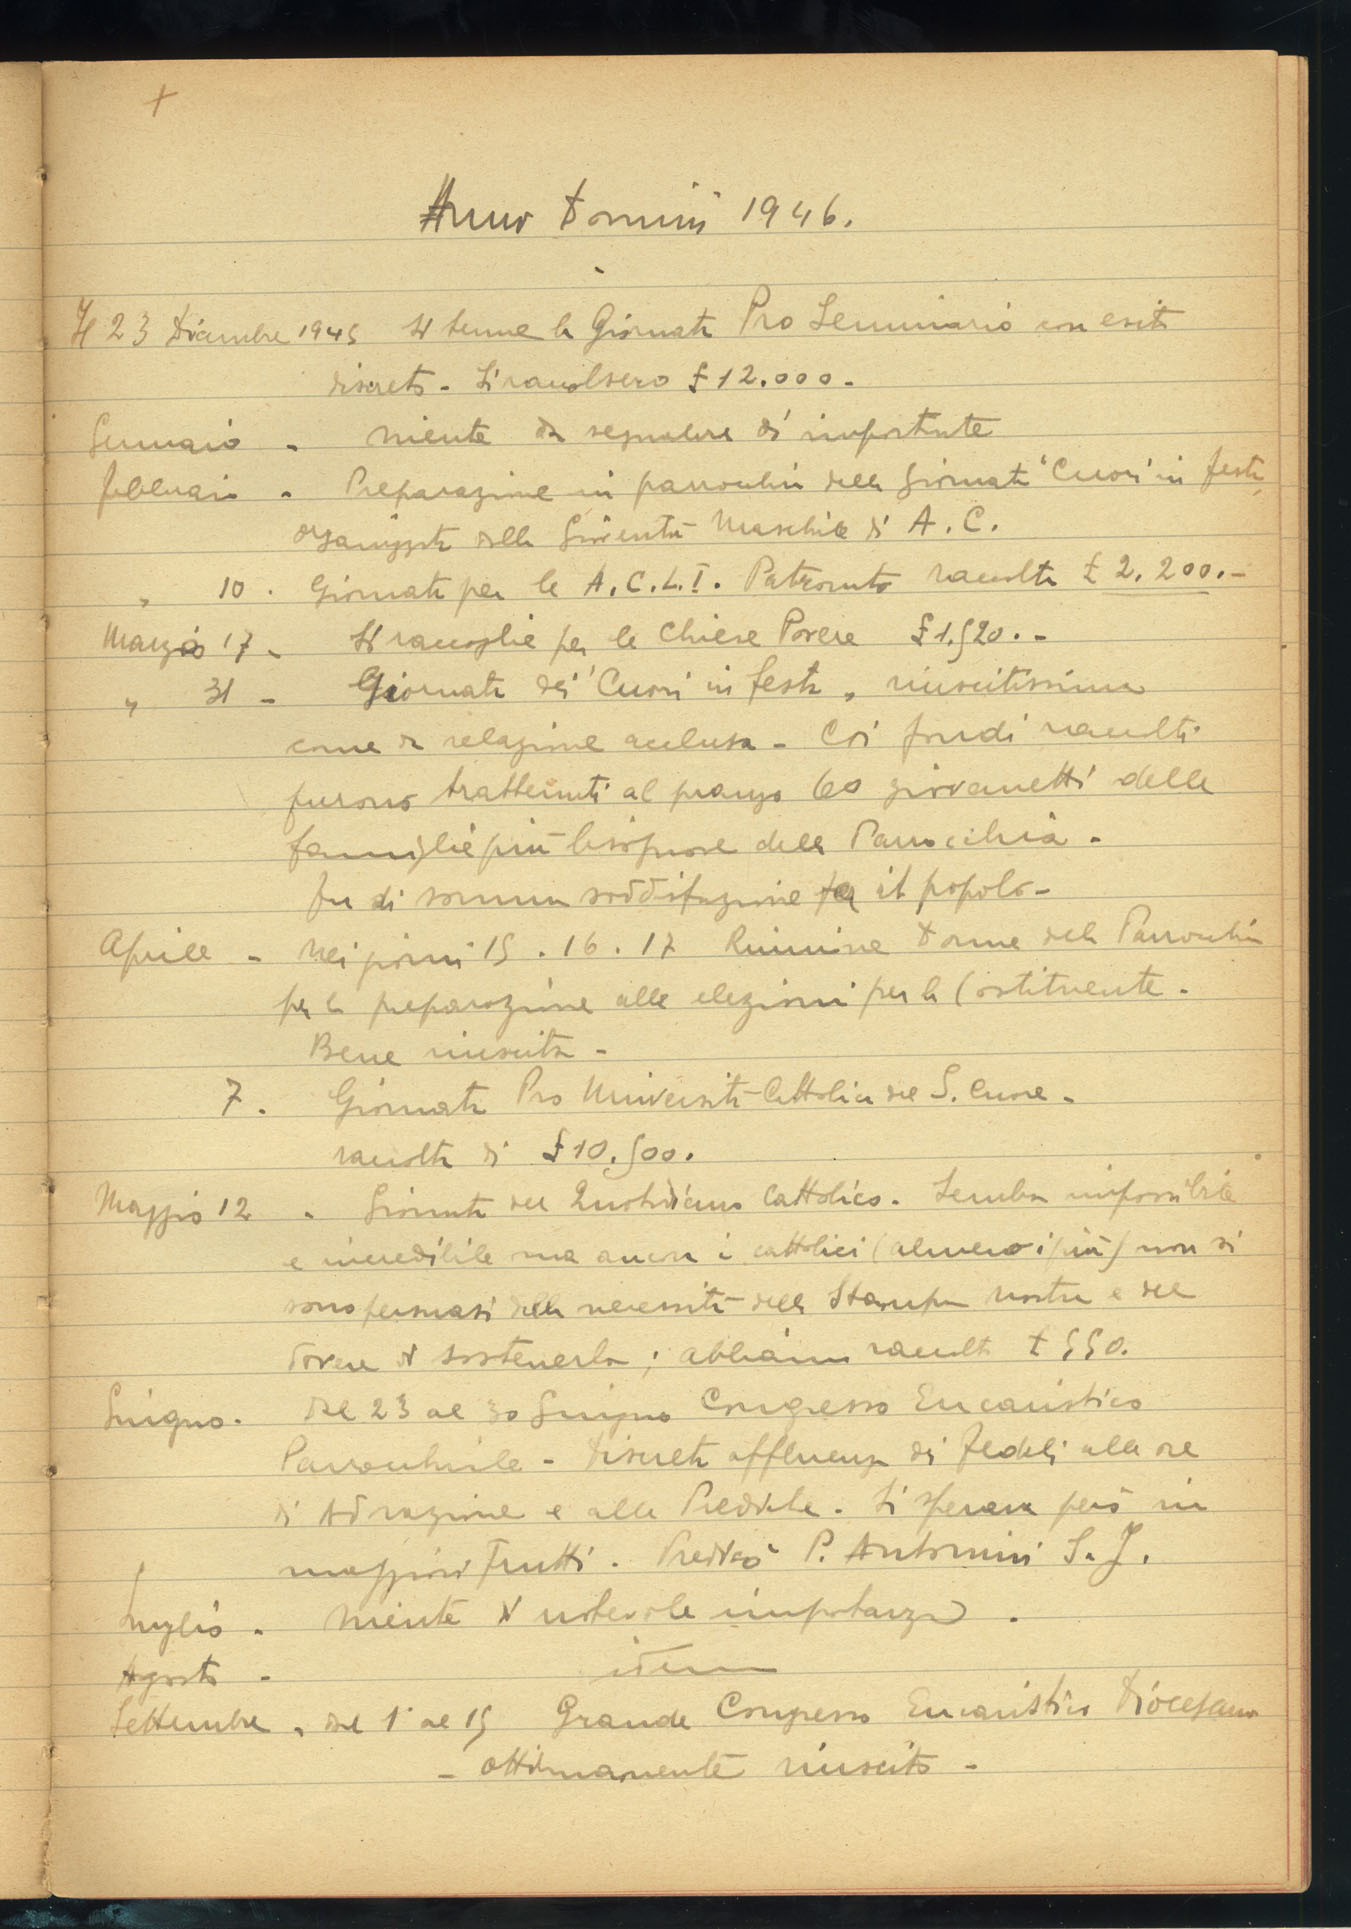 +
Anno Domini 1946.
Il 23 Dicembre 1945 Si tenne la Giornata Pro Seminario con esito
discreto - Si raccolsero £ 12.000 -
Gennaio - niente da segnalare di importante
Febbraio - Preparazione in parrocchia della giornata "Cuori in festa"
organizzata dalla Gioventù Maschile di A. C.
" 10. Giornata per le A.C.L.I. Patronato raccolta £ 2.200. -
Marzo 17 - Si raccoglie per le Chiese Povere £ 1.520. -
" 31 - Giornata dei "Cuori in festa" riuscitissima
come da relazione acclusa - Coi fondi raccolti
furono trattenuti al pranzo 60 giovanetti delle
famiglie più bisognose della Parrocchia -
fu di somma soddisfazione per il popolo -
Aprile - Nei giorni 15. 16. 17 Riunione Donne della Parrocchia
per la preparazione alle elezioni per la Costituente -
Bene riuscita -
7. Giornata Pro Università Cattolica del S. Cuore -
raccolta di £ 10.500.
Maggio 12 - Giornata del Quotidiano Cattolico - Sembra impossibile
e incredibile ma ancora i cattolici (almeno i più) non si
sono persuasi della necessità della Stampa nostra e del
dovere di sostenerla; abbiamo raccolto £ 550.
Giugno - Dal 23 al 30 Giugno Congresso Eucaristico
Parrocchiale - Discreta affluenza di Fedeli alle ore
di Adorazione e alle Prediche - Si sperava però in
maggiori Frutti. Predicò P. Antonini S. J.
Luglio - Niente di notevole importanza.
Agosto - idem
Settembre - dal 1° al 15 Grande Congresso Eucaristico Diocesano
- Ottimamente riuscito -